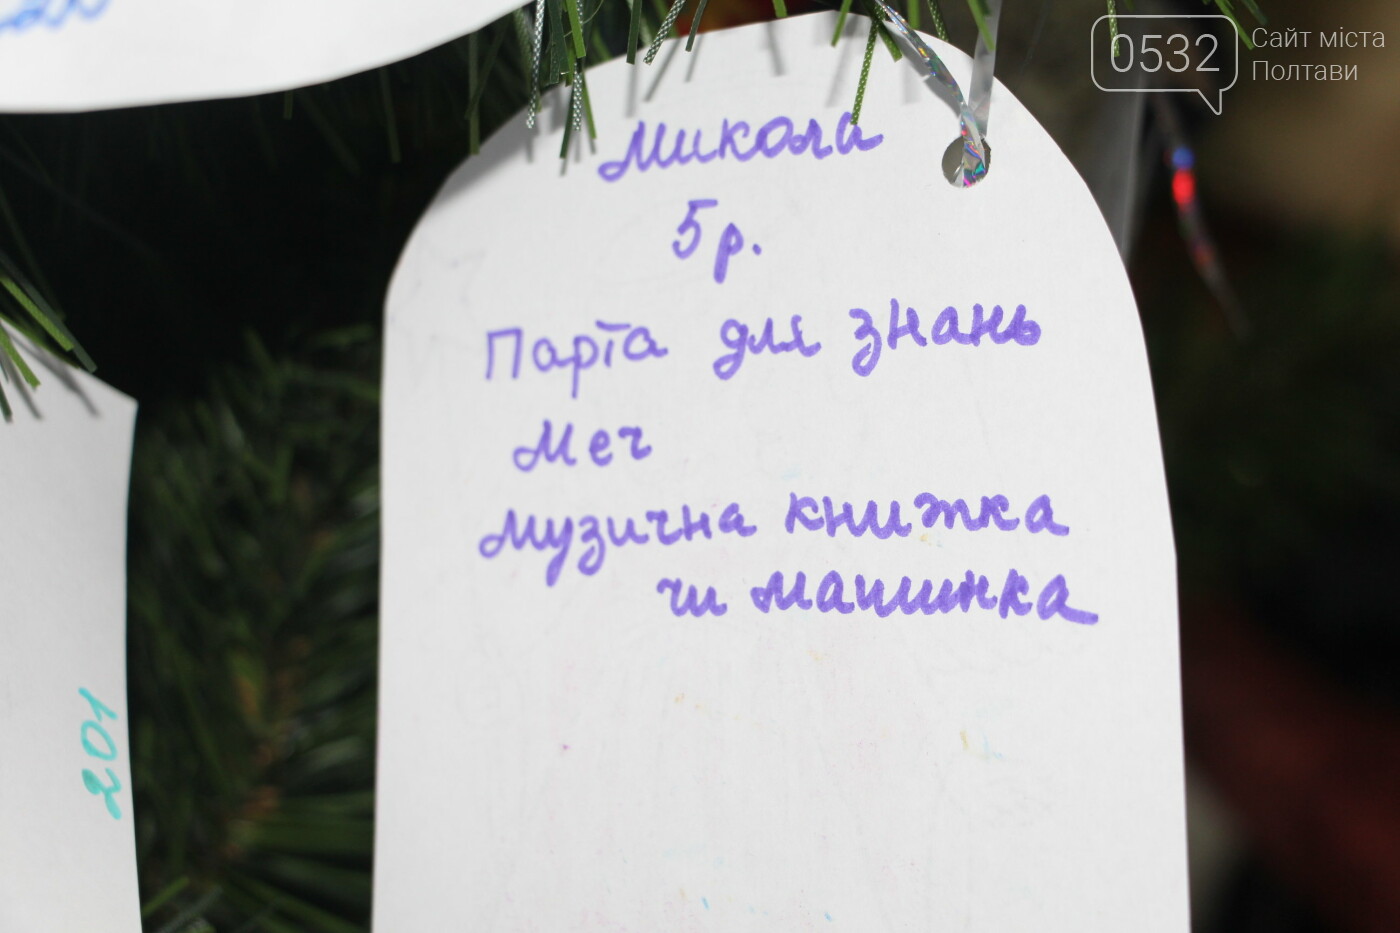 0532
Сайт міста
Полтави
Микола
5 р.
Парта для знань
Меч
Музична книжка
чи машинка
201